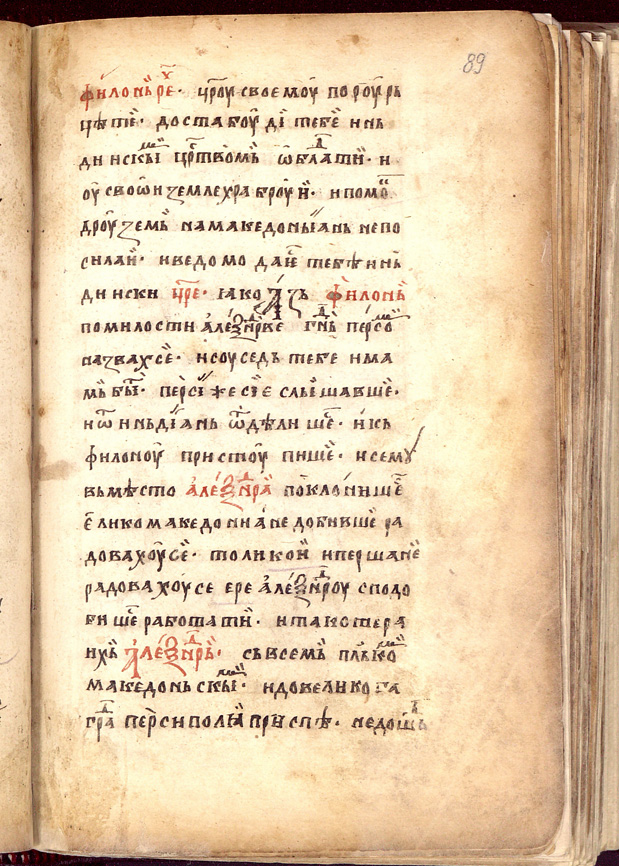 89
филонь ре҃ · цр҃оу своемоу пороуры
цѣте · доста боуди тебѣ инь
дискы црⷭ҇твомь ѡблати · и
оу своѡи землехраброуи · и помо
дроу земь на македоньꙗнь не по
силаи · иведомо да ѥ тебѣ инь
диски цр҃е · ꙗко азь филонь
по милости алеѯⷩ҇дрве гн҃ь персо
назвахсе · и соуседь тебе има
мь быти · персиꙗ же сиꙗ слышавше ·
и ѿ иньдꙗнь ѿдѣлише · и кь
филоноу пристоупише · и сему
вьмѣсто алеѯⷩ҇дра поклонише
елико македонꙗне добивше ра
довахоусе · толикои и першане
радовахоу се ере алеѯⷩ҇дроу сподо
бише работати · и тако стера
ихь алеѯⷩ҇дрь · сь всемь плько
македоньскы · и до великога
града персиполꙗ приспѣ · не дошь